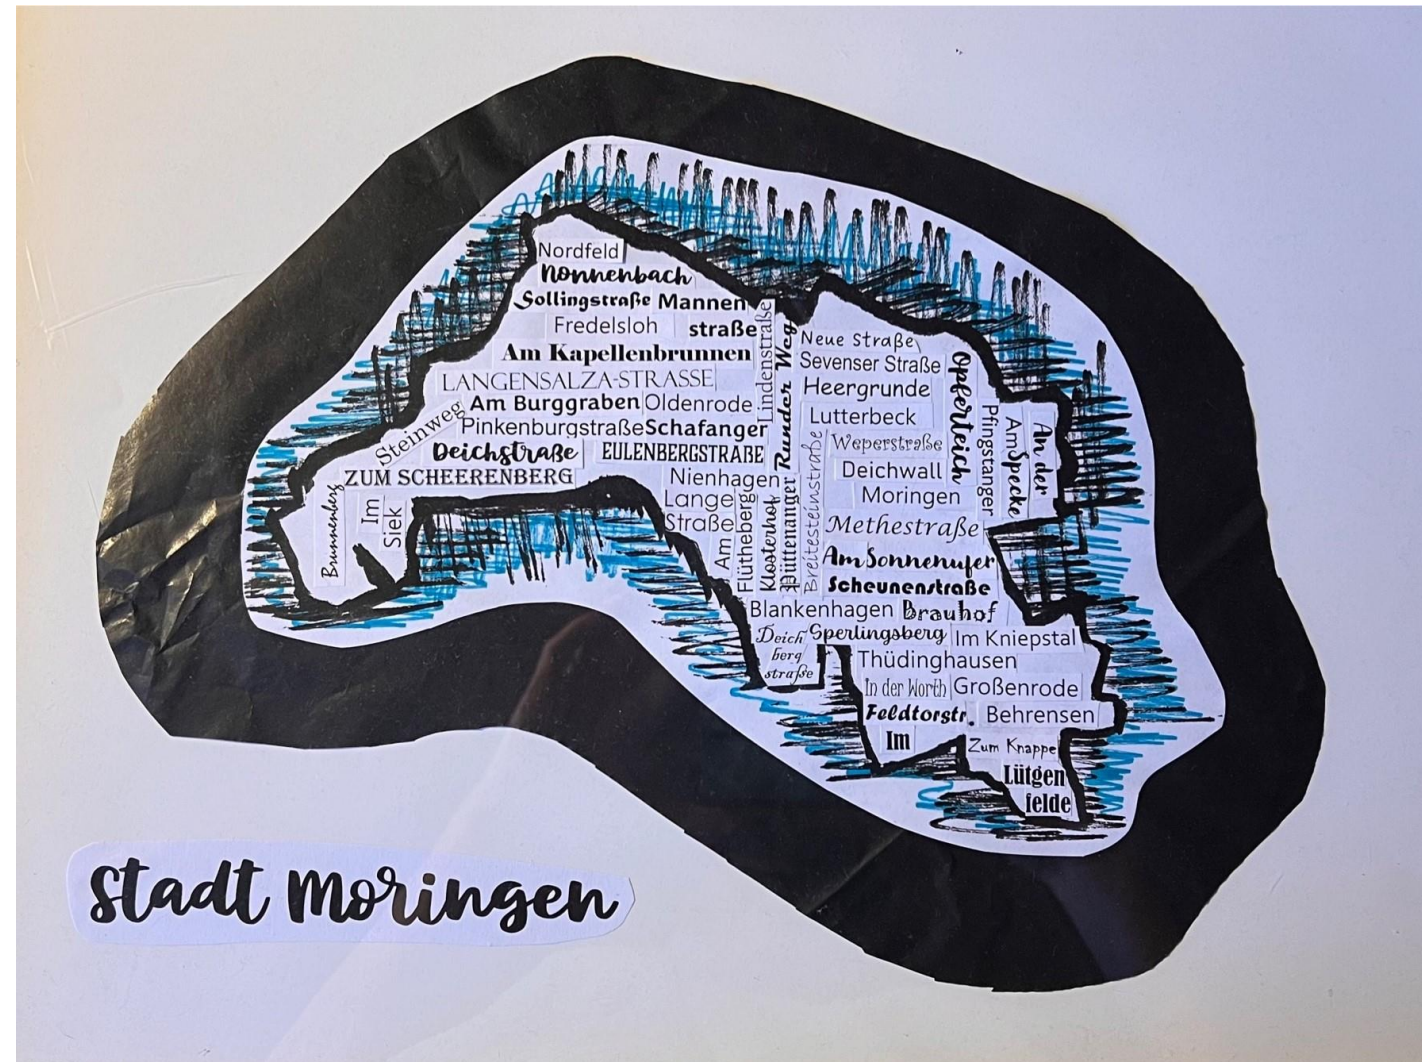 Nordfeld
Nonnenbach
Sollingstraße Mannen
straße
Fredelsloh
Am Kapellenbrunnen
LANGENSALZA-STRASSE
Am Burggraben Oldenrode
Steinweg
Pinkenburgstraße Schafanger
Deichstraße EULENBERGSTRAßE
ZUM SCHEERENBERG
Brunnenberg
Im
Siek
Nienhagen
Lange
Straße
Am
Flütheberg
Klosterhof
Püttenanger
Lindenstraße
Runder Weg
Breitesteinstraße
Neue Straße
Sevenser Straße
Heergrunde
Lutterbeck
Weperstraße
Deichwall
Moringen
Methestraße
Opferteich
Pfingstanger
Am
An der
Specke
Am Sonnenufer
Scheunenstraße
Blankenhagen Brauhof
Deich
berg
straße
Sperlingsberg Im Kniepstal
Thüdinghausen
In der Worth Großenrode
Feldtorstr. Behrensen
Im
Zum Knappe
Lütgen
felde
Stadt Moringen